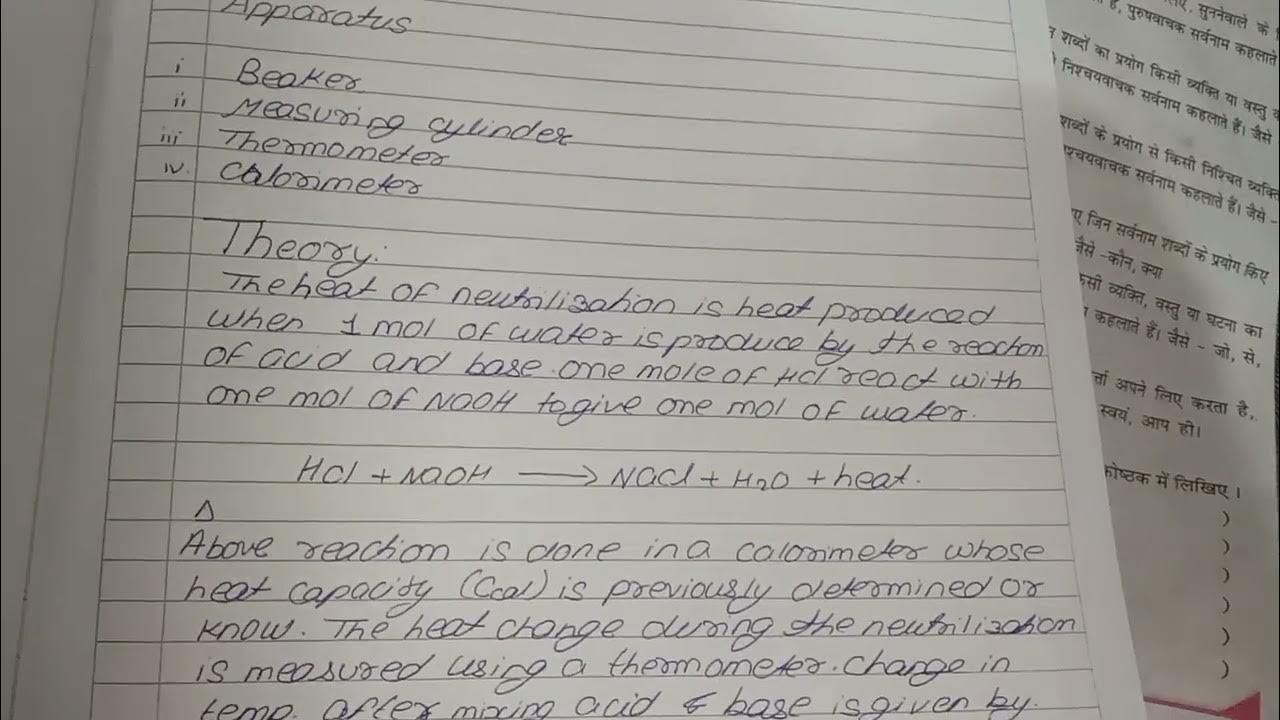 Apparatus
i Beaker
ii Measuring cylinder
iii Thermometer
iv. Calorimeter
Theory:
The heat of neutrilization is heat produced
when 1 mol of water is produce by the reaction
of acid and base. one mole of HCl react with
one mol of NaOH to give one mol of water.
HCl + NaOH ⟶ NaCl + H₂O + heat.
Δ
Above reaction is done in a calorimeter whose
heat capacity (Ccal) is previously determined or
know. The heat change during the neutrilization
is measured using a thermometer. change in
temp. after mixing acid & base is given by.
सुननेवाले के
है, पुरुषवाचक सर्वनाम कहलाते
शब्दों का प्रयोग किसी व्यक्ति या वस्तु
निश्चयवाचक सर्वनाम कहलाते हैं। जैसे
शब्दों के प्रयोग से किसी निश्चित व्यक्ति
सर्वनाम कहलाते हैं। जैसे -
जिन सर्वनाम शब्दों के प्रयोग किए
जैसे -कौन, क्या
व्यक्ति, वस्तु या घटना का
कहलाते हैं। जैसे - जो, से,
अपने लिए करता है,
स्वयं, आप ही।
कोष्ठक में लिखिए ।
)
)
)
)
)
)